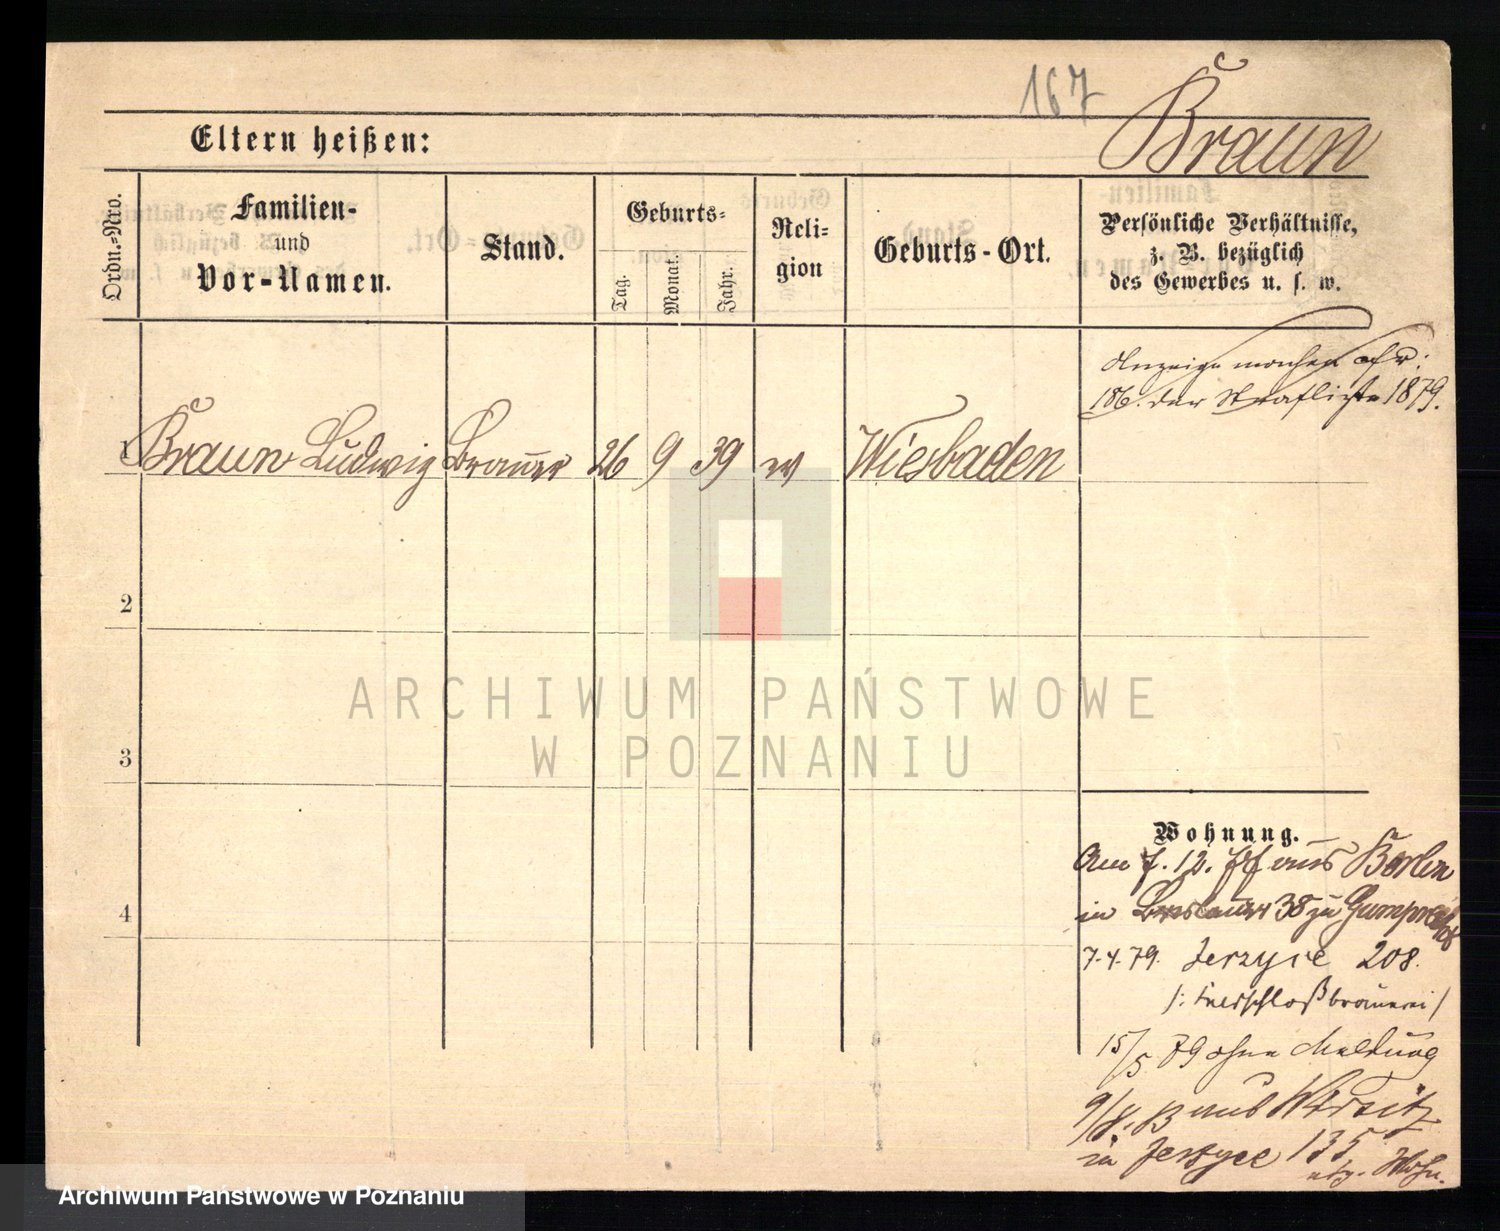 167
Braun
Eltern heißen:
Ordn.-Nro.
Familien-
und
Vor-Namen.
Stand.
Geburts-
Tag.
Monat.
Jahr.
Reli-
gion
Geburts-Ort.
Persönliche Verhältnisse,
z. B. bezüglich
des Gewerbes u. s. w.
Anzeige machen
186. der Strafliste 1879.
1 Braun Ludwig Brauer 26 9 39 Wiesbaden
2
3
4
Wohnung.
Am 7. 12. aus Berlin
in Breslauer 38 zu Gumprecht
7.4.79. Jerzyce 208.
/: Feldschloßbrauerei /
15/5 79 ohne Meldung
9/8. aus Wirsitz
in Jerzyce 135
ARCHIWUM PAŃSTWOWE
W POZNANIU
Archiwum Państwowe w Poznaniu